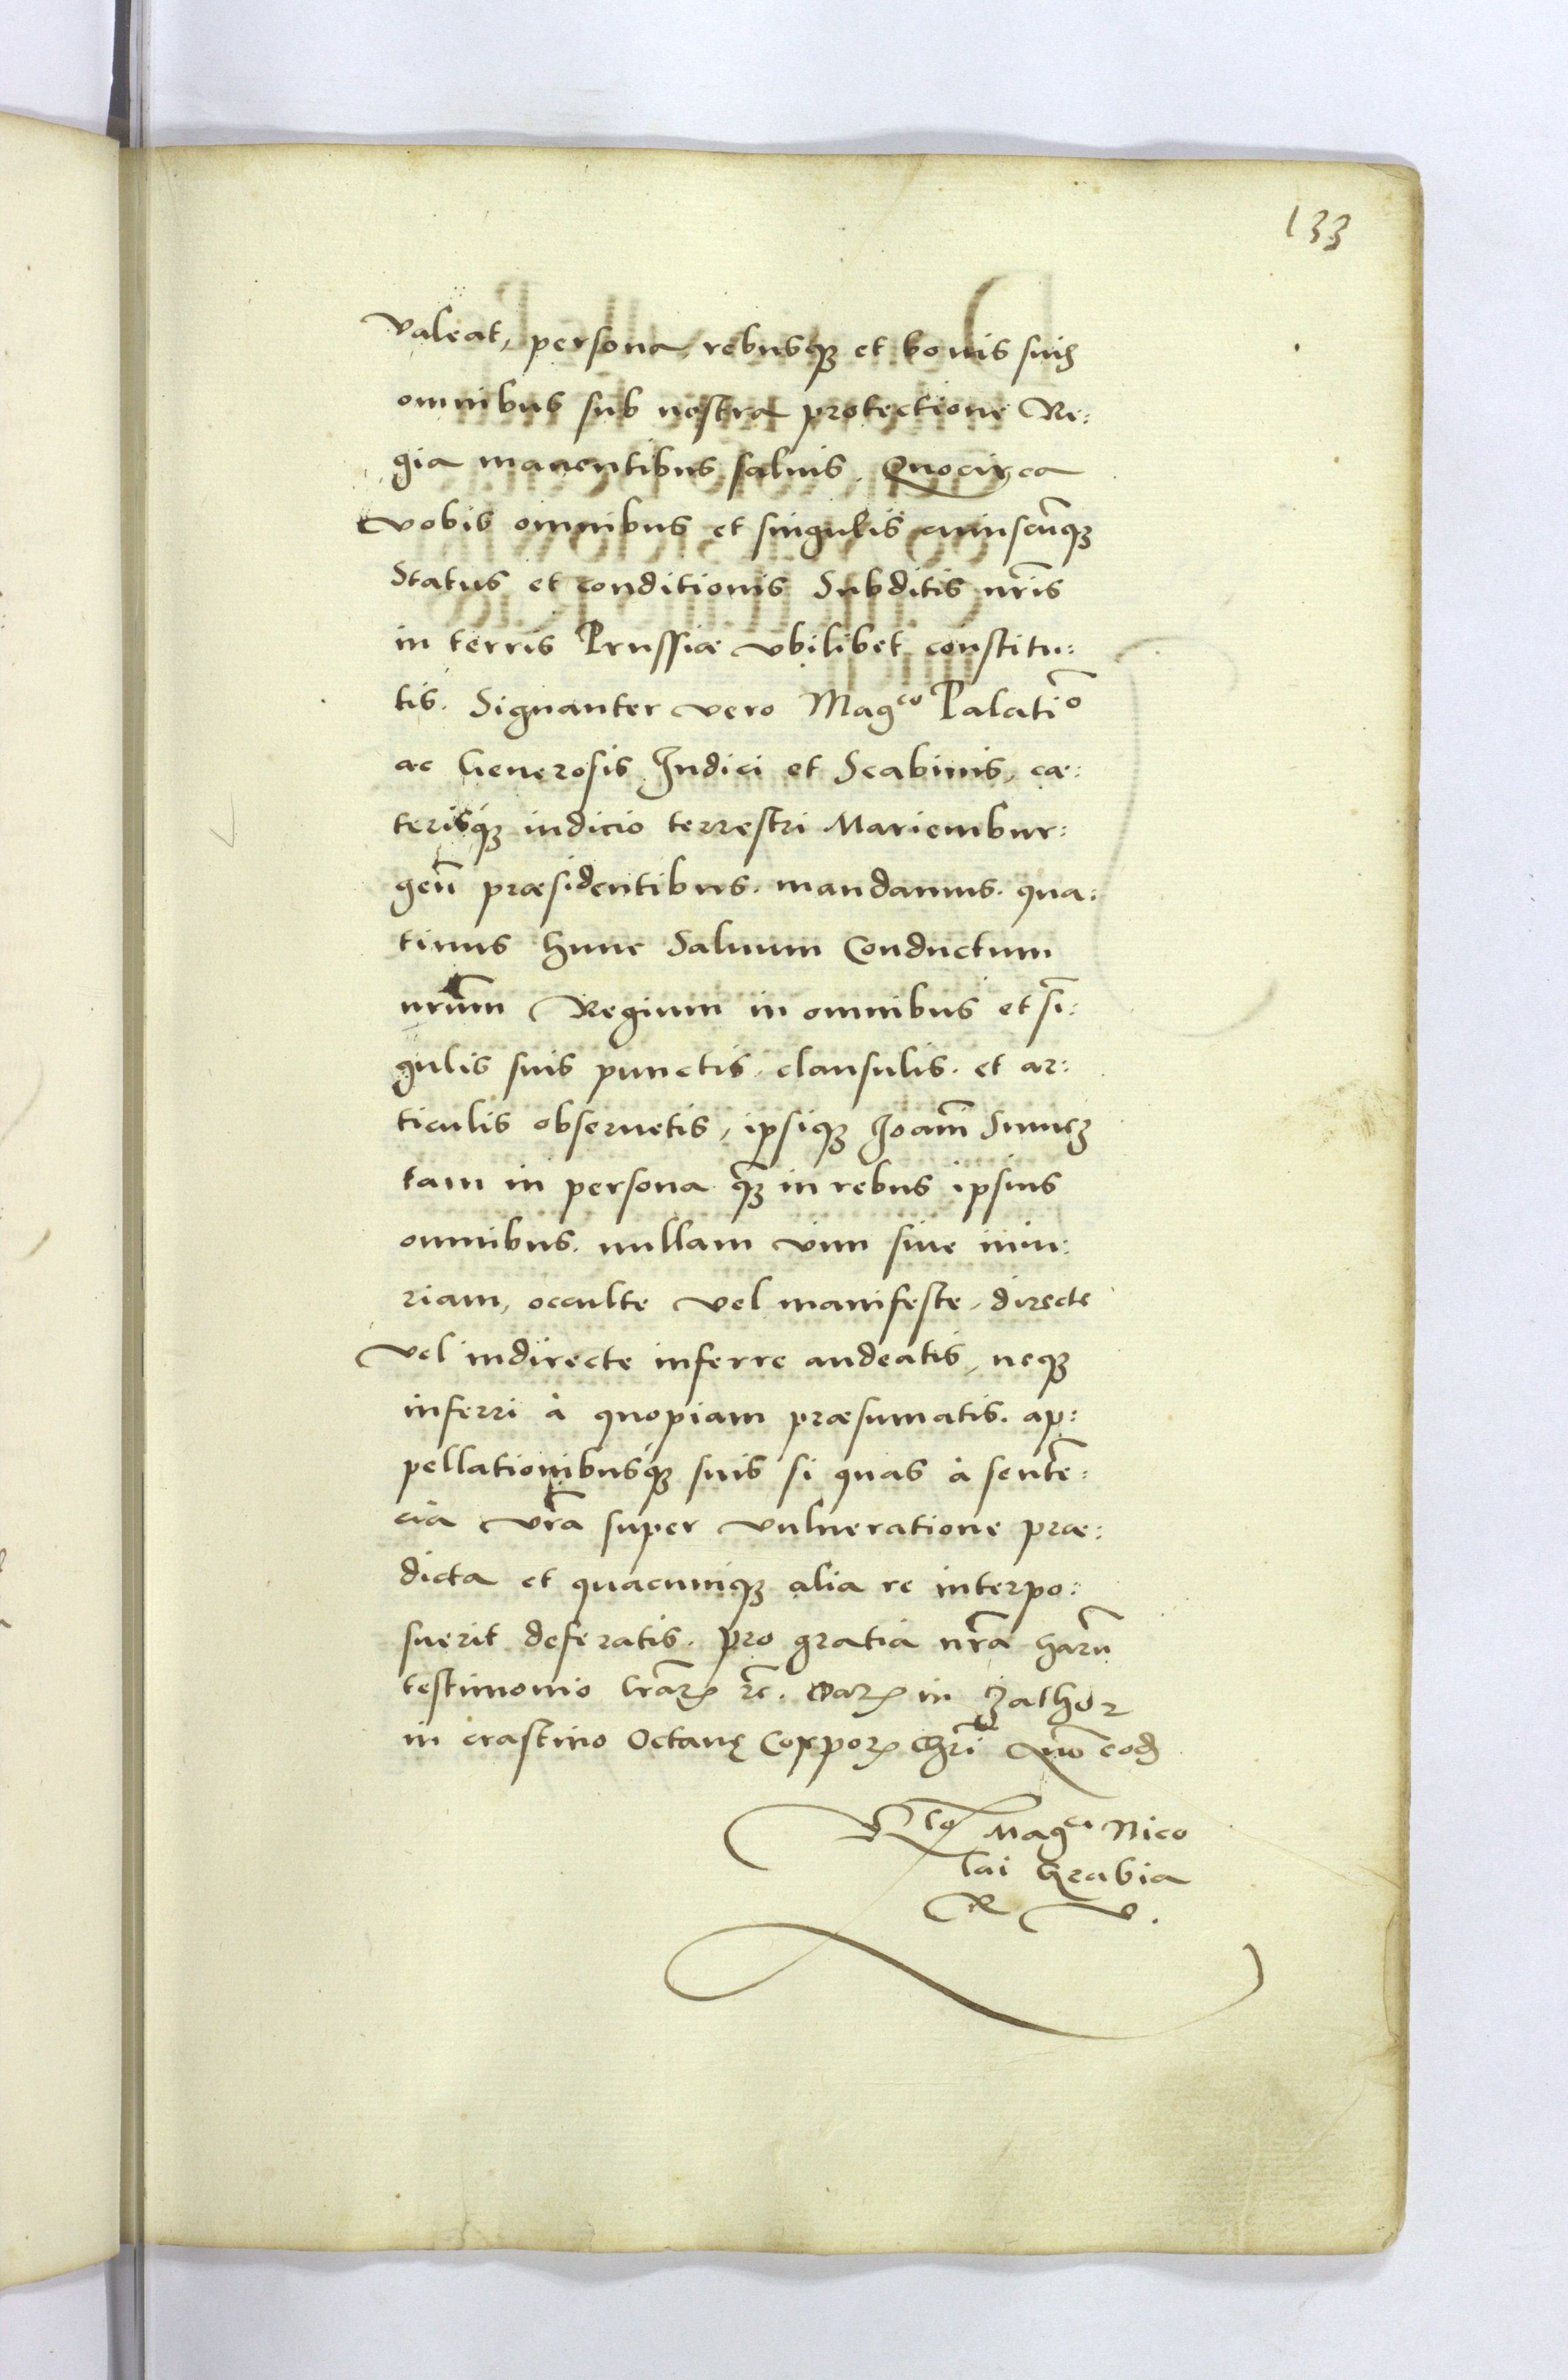 133
valeat, persona, rebusq; et bonis suis
omnibus sub nostra protectione Re:
gia manentibus saluis. Quocirca
vobis omnibus et singulis cuiuscūq;
Status et conditionis Subditis nr̄is
in terris Prussiæ vbilibet constitu:
tis. Signanter vero Mag^co Palatī^o
ac Generosis Iudici et Scabinis, cæ:
terisq; iudicio terrestri Mariembur:
geñ præsidentibus. mandamus. qua:
tinus hunc Saluum Conductum
nr̄um Regium in omnibus et sī:
gulis suis punctis, clausulis. et ar:
ticulis obseruetis, ipsiq; Joañi
tam in persona q̃; in rebus ipsius
omnibus. nullam vim siue iniu:
riam, occulte vel manifeste, directe
vel indirecte inferre audeatis, neq;
inferri à quopiam præsumatis. ap:
pellationibusq; suis si quas à sentē:
cia vr̄a super vulneratione præ:
dicta et quacumq; alia re interpo:
suerit deferatis. pro gratia nr̄a harū
testimonio lrāꝝ rc̄. Daꝝ in Zathor
in crastino Octauę Corporꝝ Chrī Āno eod
R^lo Mag^ci Nico
lai Grabia
R V.